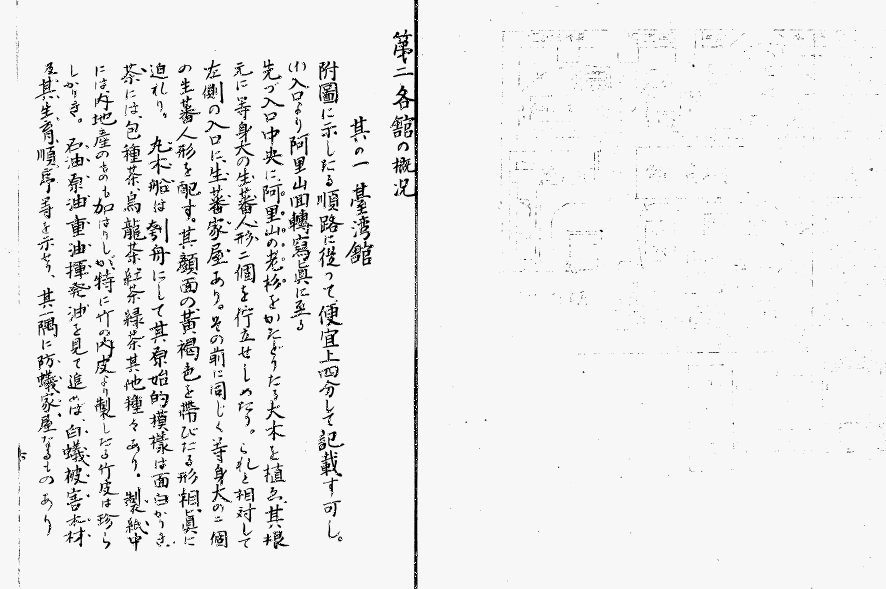 第二 各館の概況
其の一 臺湾館
附圖に示したる順路に從って便宜上四分して記載す可し。
(1)入口より阿里山回轉寫眞に至る
先づ入口中央に阿里山の老杉をかたどりたる大木を植ゑ、其根
元に等身大の生蕃人形二個を佇立せしめたり。られと相対して
左側の入口に、生蕃家屋あり。その前に同じく等身大の二個
の生蕃人形を配す。其顔面の黄褐色を帶びたる形相、眞に
迫れり。丸木船は刳舟にして其原始的模様は面白かりき。
茶には、包種茶、烏龍茶、紅茶、綠茶其他種々あり。製紙中
には、内地産のものも加はりしが、特に竹の内皮より製したる竹皮は珍ら
しかりき。石油原油、重油、揮発油を見て進めば、白蟻被害木材
及其生育順序等を示せり、其一隅に防蟻家屋なるものあり